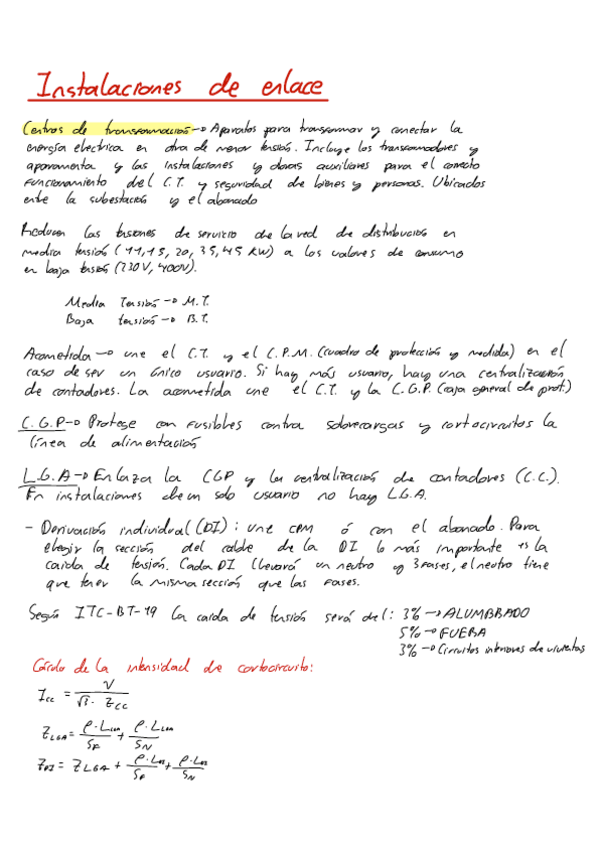 Instalaciones de enlace
Centros de transformación → Aparatos para transformar y conectar la
energía electrica en otra de menor tensión. Incluye los transformadores y
aparamenta y las instalaciones y obras auxiliares para el correcto
funcionamiento del C.T. y seguridad de bienes y personas. Ubicados
entre la subestación y el abonado
Reducen las tensiones de servicio de la red de distribución en
media tensión (11, 15, 20, 35, 45 KW) a los valores de consumo
en baja tensión (230V, 400V).
Media Tensión → M.T.
Baja tensión → B.T.
Acometida → une el C.T. y el C.P.M. (cuadro de protección y medida) en el
caso de ser un único usuario. Si hay más usuario, hay una centralización
de contadores. La acometida une el C.T. y la C.G.P. (caja general de prot.)
C.G.P → Protege con fusibles contra sobrecargas y cortocircuitos la
línea de alimentación
L.G.A → Enlaza la CGP y la centralización de contadores (C.C.).
En instalaciones de un solo usuario no hay L.G.A.
- Derivación individual (DI): une CPM ó con el abonado. Para
elegir la sección del cable de la DI lo más importante es la
caída de tensión. Cada DI llevará un neutro y 3 fases, el neutro tiene
que tener la misma sección que las fases.
Según ITC-BT-19 la caida de tensión será del: 3% → ALUMBRADO
5% → FUERA
3% → Circuitos interiores de viviendas
Cálculo de la intensidad de cortocircuito:
Icc = V / √3 · Zcc
Z LGA = ρ·L / SF + ρ·L / SN
Z DI = Z LGA + ρ·L / SF + ρ·L / SN